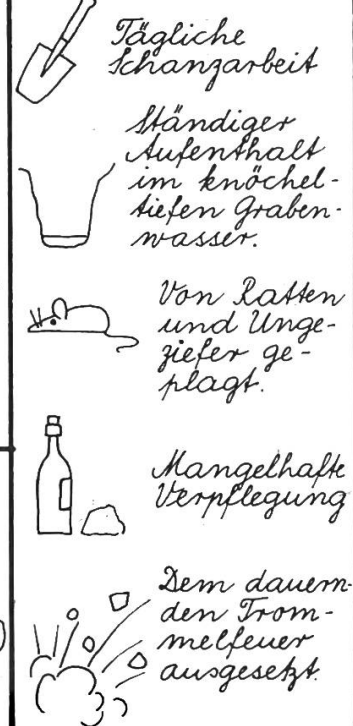 Tägliche
Schanzarbeit
Ständiger
Aufenthalt
im knöchel-
tiefen Graben-
wasser.
Von Ratten
und Unge-
ziefer ge-
plagt.
Mangelhafte
Verpflegung
Dem dauern-
den Trom-
melfeuer
ausgesetzt.